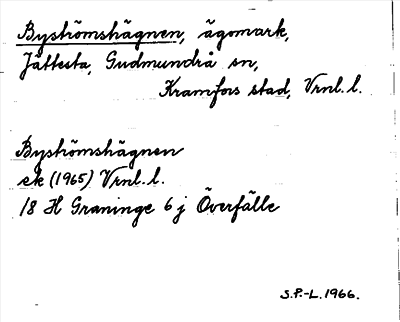 Byströmshägnen, ägomark,
Jättesta, Gudmundrå sn,
Kramfors stad, Vrnl. l.
Byströmshägnen
ek (1965) Vrnl. l.
18 H Graninge 6 j Överfälle
S.P.-L. 1966.